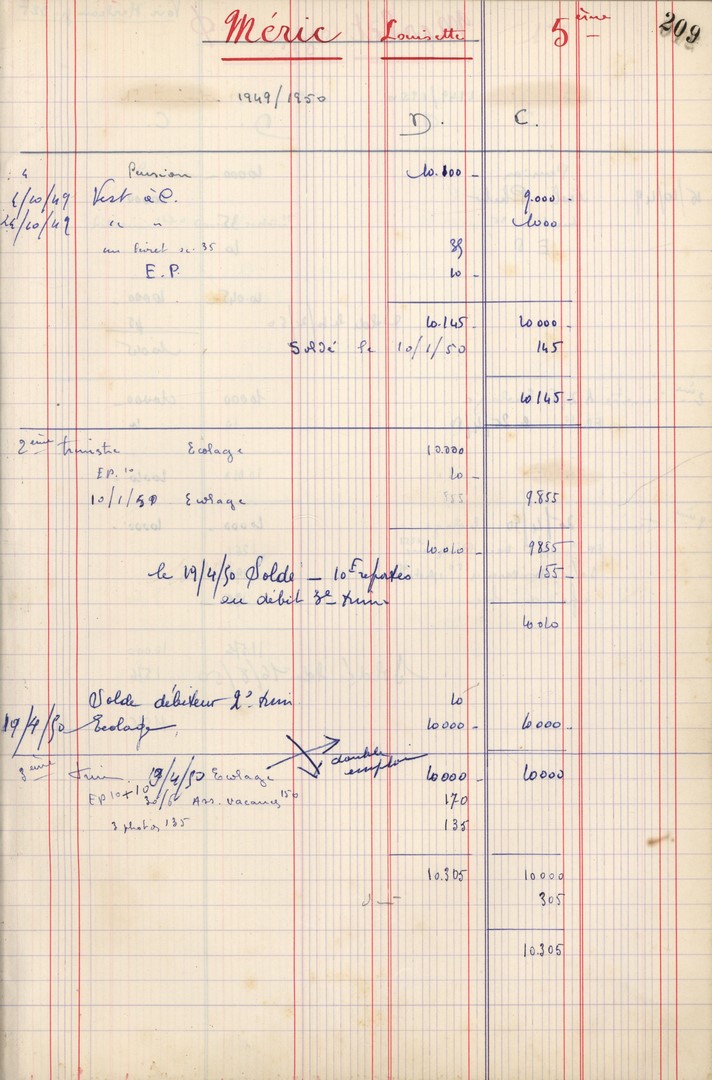 Méric Louisette 5ème 209
1949/1950
D. C.
Pension 10.100 -
4/10/49 Verst à C. 9.000 -
24/10/49 " " 1000
un livret sc. 35 35
E.P. 10 -
10.145 10 000 -
Soldé le 10/1/50 145
10 145 -
2ème trimestre Ecolage 10.000
EP. 10 10 -
10/1/50 Ecolage 9.855
10.010 - 9855
le 19/4/50 Soldé — 10F reportés 155 -
au débit 3e trim
10 010
Solde débiteur 2e trim 10
19/4/50 Ecolage 10 000 - 10 000 -
double
emploi
3ème trim. 19/4/50 Ecolage 10 000 - 10000
EP 10 + 10 30/6 Ass. vacances 150 170
3 photos 135 135
10.305 10 000
305
10.305